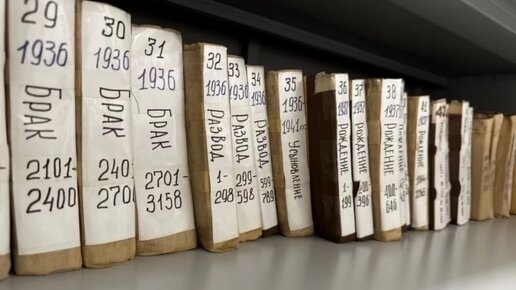 29
1936
БРАК
2101-
2400
30
1936
БРАК
240
270
31
1936
БРАК
2701-
3158
32
1936
РАЗВОД
1-
298
33
1936
РАЗВОД
299-
598
34
1936
РАЗВОД
599-
789
35
1936-
1941
УСЫНОВЛЕНИЕ
36
1937
РОЖДЕНИЕ
1-
199
37
1937
РОЖДЕНИЕ
38
1937
РОЖДЕНИЕ
400-
646
РОЖДЕНИЕ
42